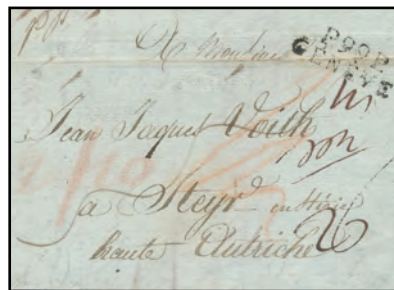 pp
A Monsieur
P99P
GENEVE
Jean Jaques Voith
à Steyr en Stirie
haute Autriche